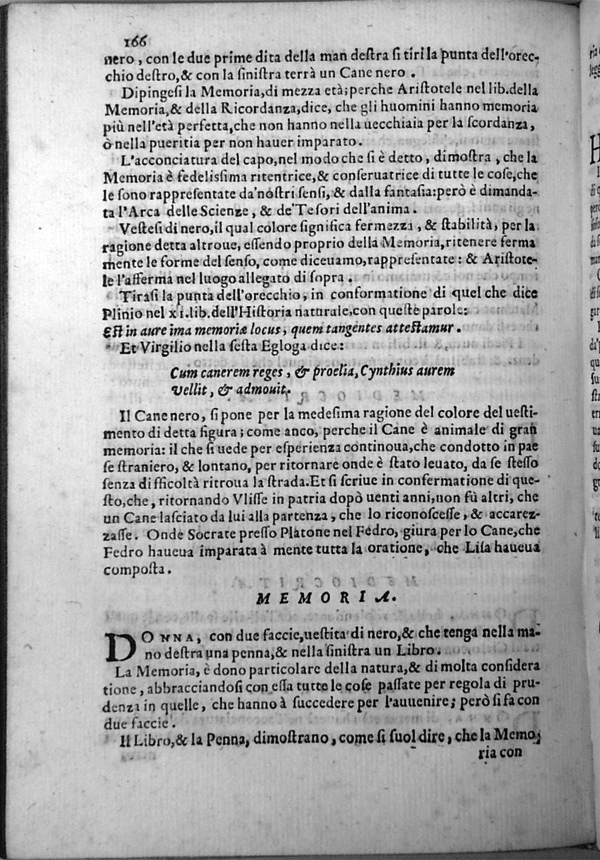 166
nero, con le due prime dita della man destra si tiri la punta dell'orec-
chio destro, & con la sinistra terrà un Cane nero.
Dipingesi la Memoria, di mezza età; perche Aristotele nel lib. della
Memoria, & della Ricordanza, dice, che gli huomini hanno memoria
più nell'età perfetta, che non hanno nella uecchiaia per la scordanza,
ò nella pueritia per non hauer imparato.
L'acconciatura del capo, nel modo che si è detto, dimostra, che la
Memoria è fedelissima ritentrice, & conseruatrice di tutte le cose, che
le sono rappresentate da'nostri sensi, & dalla fantasia: però è dimanda-
ta l'Arca delle Scienze, & de'Tesori dell'anima.
Vestesi di nero, il qual colore significa fermezza, & stabilità, per la
ragione detta altroue, essendo proprio della Memoria, ritenere ferma
mente le forme del senso, come diceuamo, rappresentate: & Aristote-
le l'afferma nel luogo allegato di sopra.
Tirasi la punta dell'orecchio, in conformatione di quel che dice
Plinio nel xi. lib. dell'Historia naturale, con queste parole:
Est in aure ima memoriæ locus, quem tangentes attestamur.
Et Virgilio nella sesta Egloga dice:
Cum canerem reges, & proelia, Cynthius aurem
Vellit, & admouit.
Il Cane nero, si pone per la medesima ragione del colore del uesti-
mento di detta figura; come anco, perche il Cane è animale di gran
memoria: il che si uede per esperienza continoua, che condotto in pae
se straniero, & lontano, per ritornare onde è stato leuato, da se stesso
senza difficoltà ritroua la strada. Et si scriue in confermatione di que-
sto, che, ritornando Vlisse in patria dopò uenti anni, non fù altri, che
un Cane lasciato da lui alla partenza, che lo riconoscesse, & accarez-
zasse. Onde Socrate presso Platone nel Fedro, giura per lo Cane, che
Fedro haueua imparata à mente tutta la oratione, che Lisa haueua
composta.
MEMORIA.
DONNA, con due faccie, uestita di nero, & che tenga nella ma-
no destra una penna, & nella sinistra un Libro.
La Memoria, è dono particolare della natura, & di molta considera
tione, abbracciandosi con essa tutte le cose passate per regola di pru-
denza in quelle, che hanno à succedere per l'auuenire; però si fa con
due faccie.
Il Libro, & la Penna, dimostrano, come si suol dire, che la Memo-
ria con